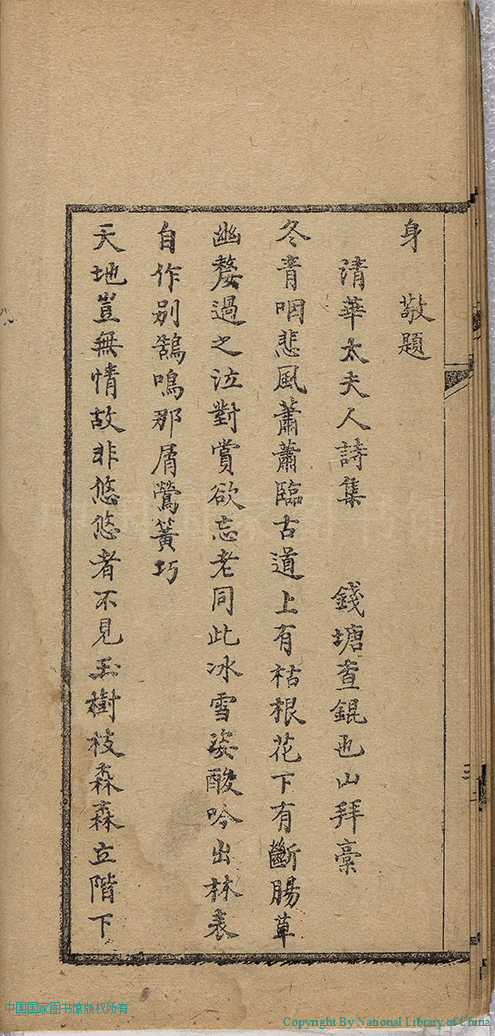 身　敬題
清華太夫人詩集　錢塘查錕也山拜稾
冬青咽悲風蕭蕭臨古道上有枯根花下有斷腸草
幽嫠過之泣對賞欲忘老同此冰雪姿酸吟出林表
自作别鵠鳴那屑鶯簧巧
天地豈無情故非悠悠者不見玉樹枝森森立階下
中国国家图书馆版权所有
Copyright By National Library of China